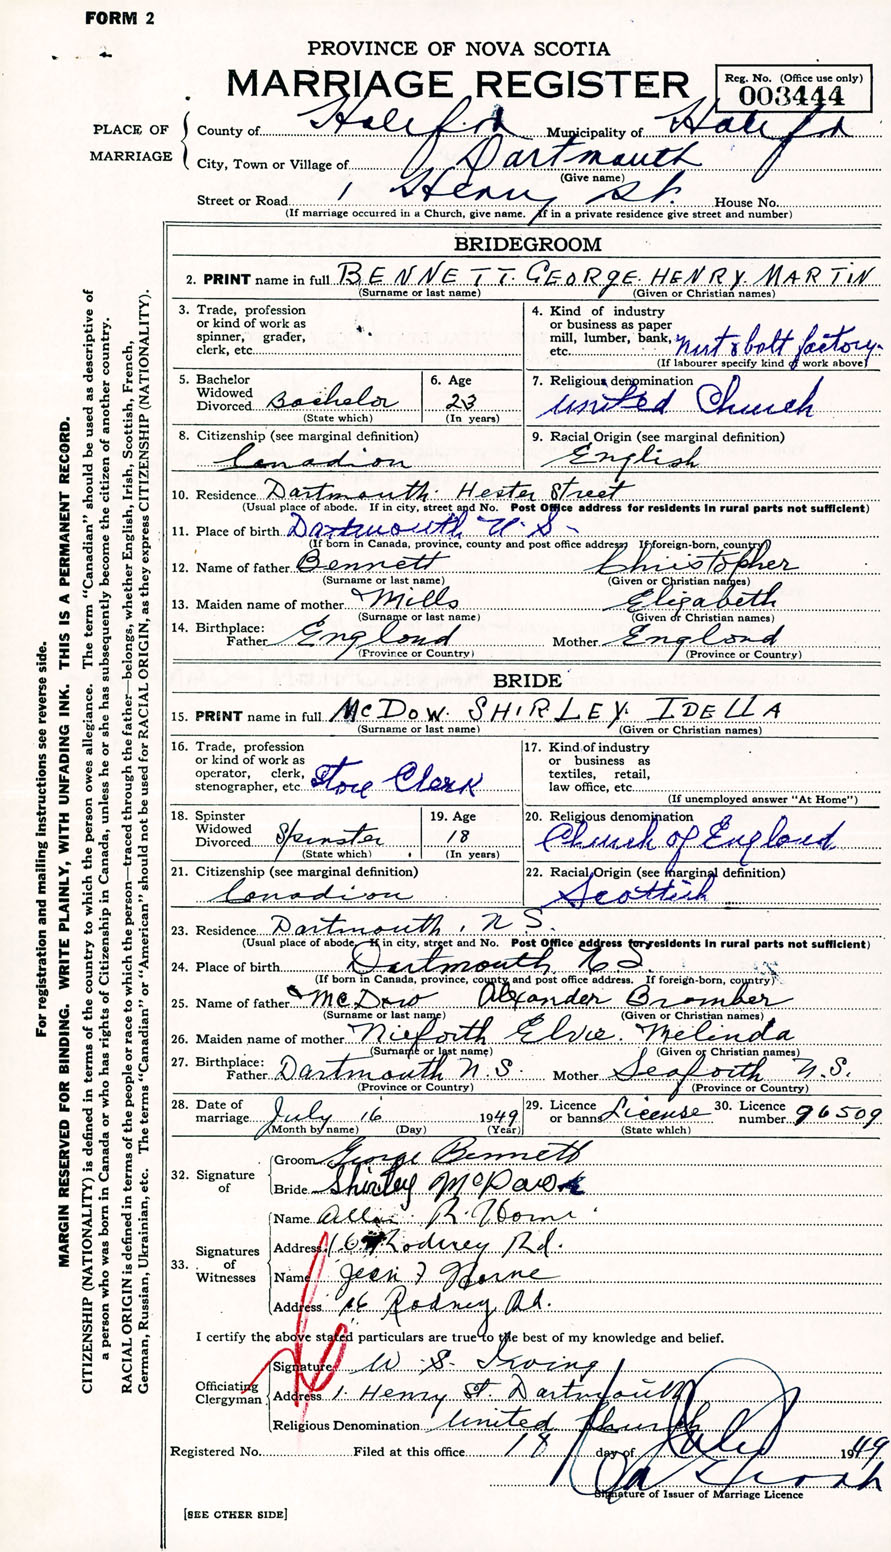 FORM 2
PROVINCE OF NOVA SCOTIA
MARRIAGE REGISTER
Reg. No. (Office use only)
003444
PLACE OF MARRIAGE
County of Halifax Municipality of Halifax
City, Town or Village of Dartmouth
(Give name)
Street or Road 1 Henry St. House No.
(If marriage occurred in a Church, give name. If in a private residence give street and number)
BRIDEGROOM
2. PRINT name in full BENNETT. GEORGE. HENRY. MARTIN
(Surname or last name) (Given or Christian names)
3. Trade, profession
or kind of work as
spinner, grader,
clerk, etc.
4. Kind of industry
or business as paper
mill, lumber, bank,
etc. nut & bolt factory.
(If labourer specify kind of work above)
5. Bachelor
Widowed
Divorced Bachelor
(State which)
6. Age
23
(In years)
7. Religious denomination
United Church
8. Citizenship (see marginal definition)
Canadian
9. Racial Origin (see marginal definition)
English
10. Residence Dartmouth. Hester Street
(Usual place of abode. If in city, street and No. Post Office address for residents in rural parts not sufficient)
11. Place of birth Dartmouth N.S.
(If born in Canada, province, county and post office address. If foreign-born, country)
12. Name of father Bennett Christopher
(Surname or last name) (Given or Christian names)
13. Maiden name of mother Mills Elizabeth
(Surname or last name) (Given or Christian names)
14. Birthplace:
Father England Mother England
(Province or Country) (Province or Country)
BRIDE
15. PRINT name in full McDOW. SHIRLEY. IDELLA
(Surname or last name) (Given or Christian names)
16. Trade, profession
or kind of work as
operator, clerk,
stenographer, etc. Store Clerk
17. Kind of industry
or business as
textiles, retail,
law office, etc.
(If unemployed answer "At Home")
18. Spinster
Widowed
Divorced Spinster
(State which)
19. Age
18
(In years)
20. Religious denomination
Church of England
21. Citizenship (see marginal definition)
Canadian
22. Racial Origin (see marginal definition)
Scottish
23. Residence Dartmouth, N.S.
(Usual place of abode. If in city, street and No. Post Office address for residents in rural parts not sufficient)
24. Place of birth Dartmouth N.S.
(If born in Canada, province, county and post office address. If foreign-born, country)
25. Name of father McDow Alexander Bromber
(Surname or last name) (Given or Christian names)
26. Maiden name of mother Nieforth Elvie. Melinda
(Surname or last name) (Given or Christian names)
27. Birthplace:
Father Dartmouth N.S. Mother Seaforth N.S.
(Province or Country) (Province or Country)
28. Date of
marriage July 16 1949
(Month by name) (Day) (Year)
29. Licence
or banns License
(State which)
30. Licence
number 96509
32. Signature
of
Groom George Bennett
Bride Shirley McDow
33. Signatures
of
Witnesses
Name Allan R. Horne
Address 16 Rodney Rd.
Name Jean F Horne
Address 16 Rodney Rd.
I certify the above stated particulars are true to the best of my knowledge and belief.
Officiating
Clergyman
Signature W. S. Irving
Address 1 Henry St. Dartmouth
Religious Denomination United Church
Registered No. Filed at this office 18 day of July 1949
Signature of Issuer of Marriage Licence
[SEE OTHER SIDE]
For registration and mailing instructions see reverse side.
MARGIN RESERVED FOR BINDING. WRITE PLAINLY, WITH UNFADING INK. THIS IS A PERMANENT RECORD.
CITIZENSHIP (NATIONALITY) is defined in terms of the country to which the person owes allegiance. The term "Canadian" should be used as descriptive of
a person who was born in Canada or who has rights of Citizenship in Canada, unless he or she has subsequently become the citizen of another country.
RACIAL ORIGIN is defined in terms of the people or race to which the person—traced through the father—belongs, whether English, Irish, Scottish, French,
German, Russian, Ukrainian, etc. The terms "Canadian" or "American" should not be used for RACIAL ORIGIN, as they express CITIZENSHIP (NATIONALITY).